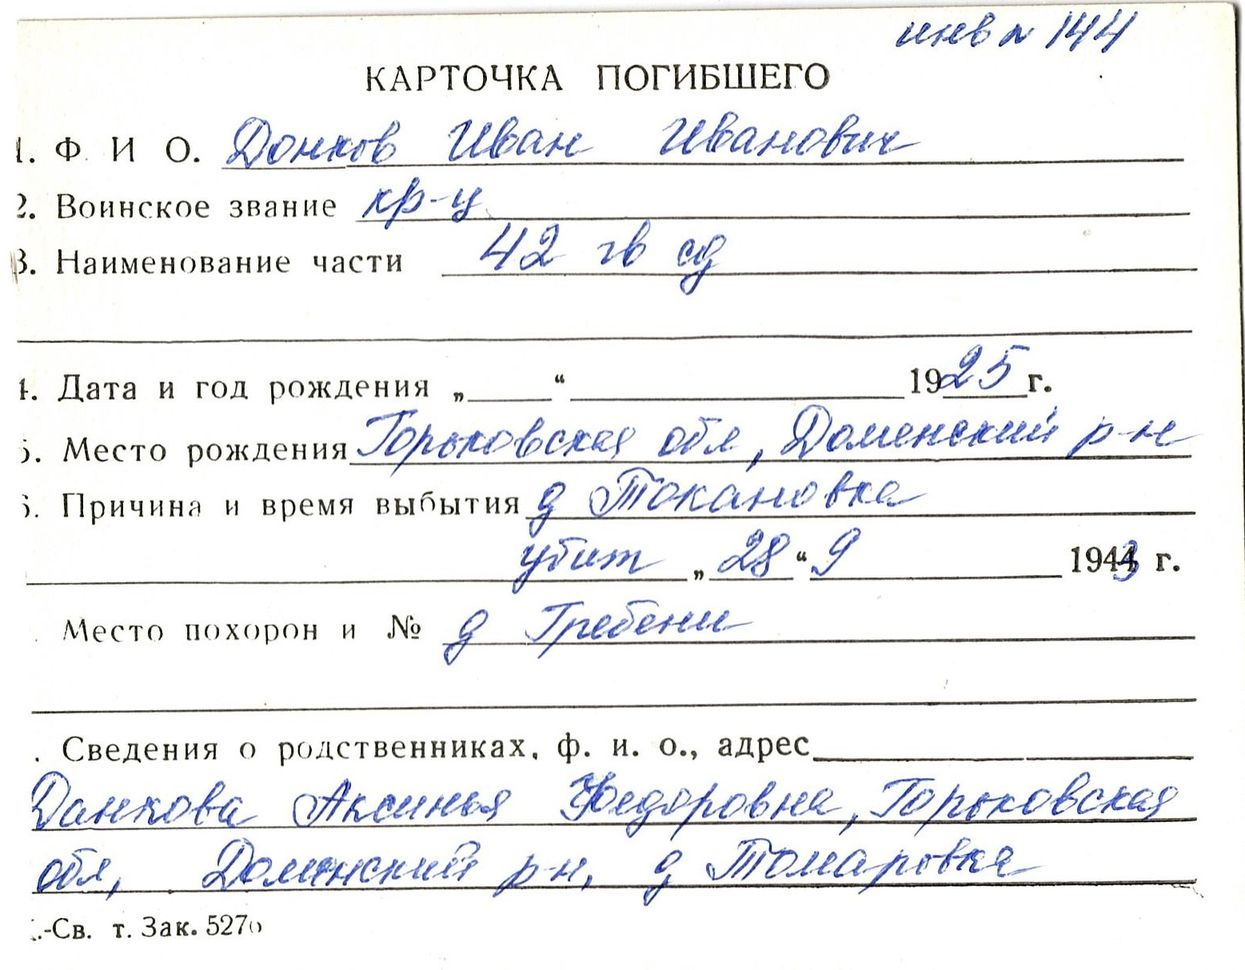 инв № 144
КАРТОЧКА ПОГИБШЕГО
1. Ф И О. Донков Иван Иванович
2. Воинское звание кр-ц
3. Наименование части 42 гв сд
4. Дата и год рождения „ “ 1925 г.
5. Место рождения Горьковская обл, Доменский р-н
6. Причина и время выбытия д Токановка
убит „28“ 9 1943 г.
. Место похорон и № д Гребени
. Сведения о родственниках, ф. и. о., адрес
Данкова Аксинья Федоровна, Горьковская
обл, Доменский р-н, д Томаровка
.-Св. т. Зак. 527